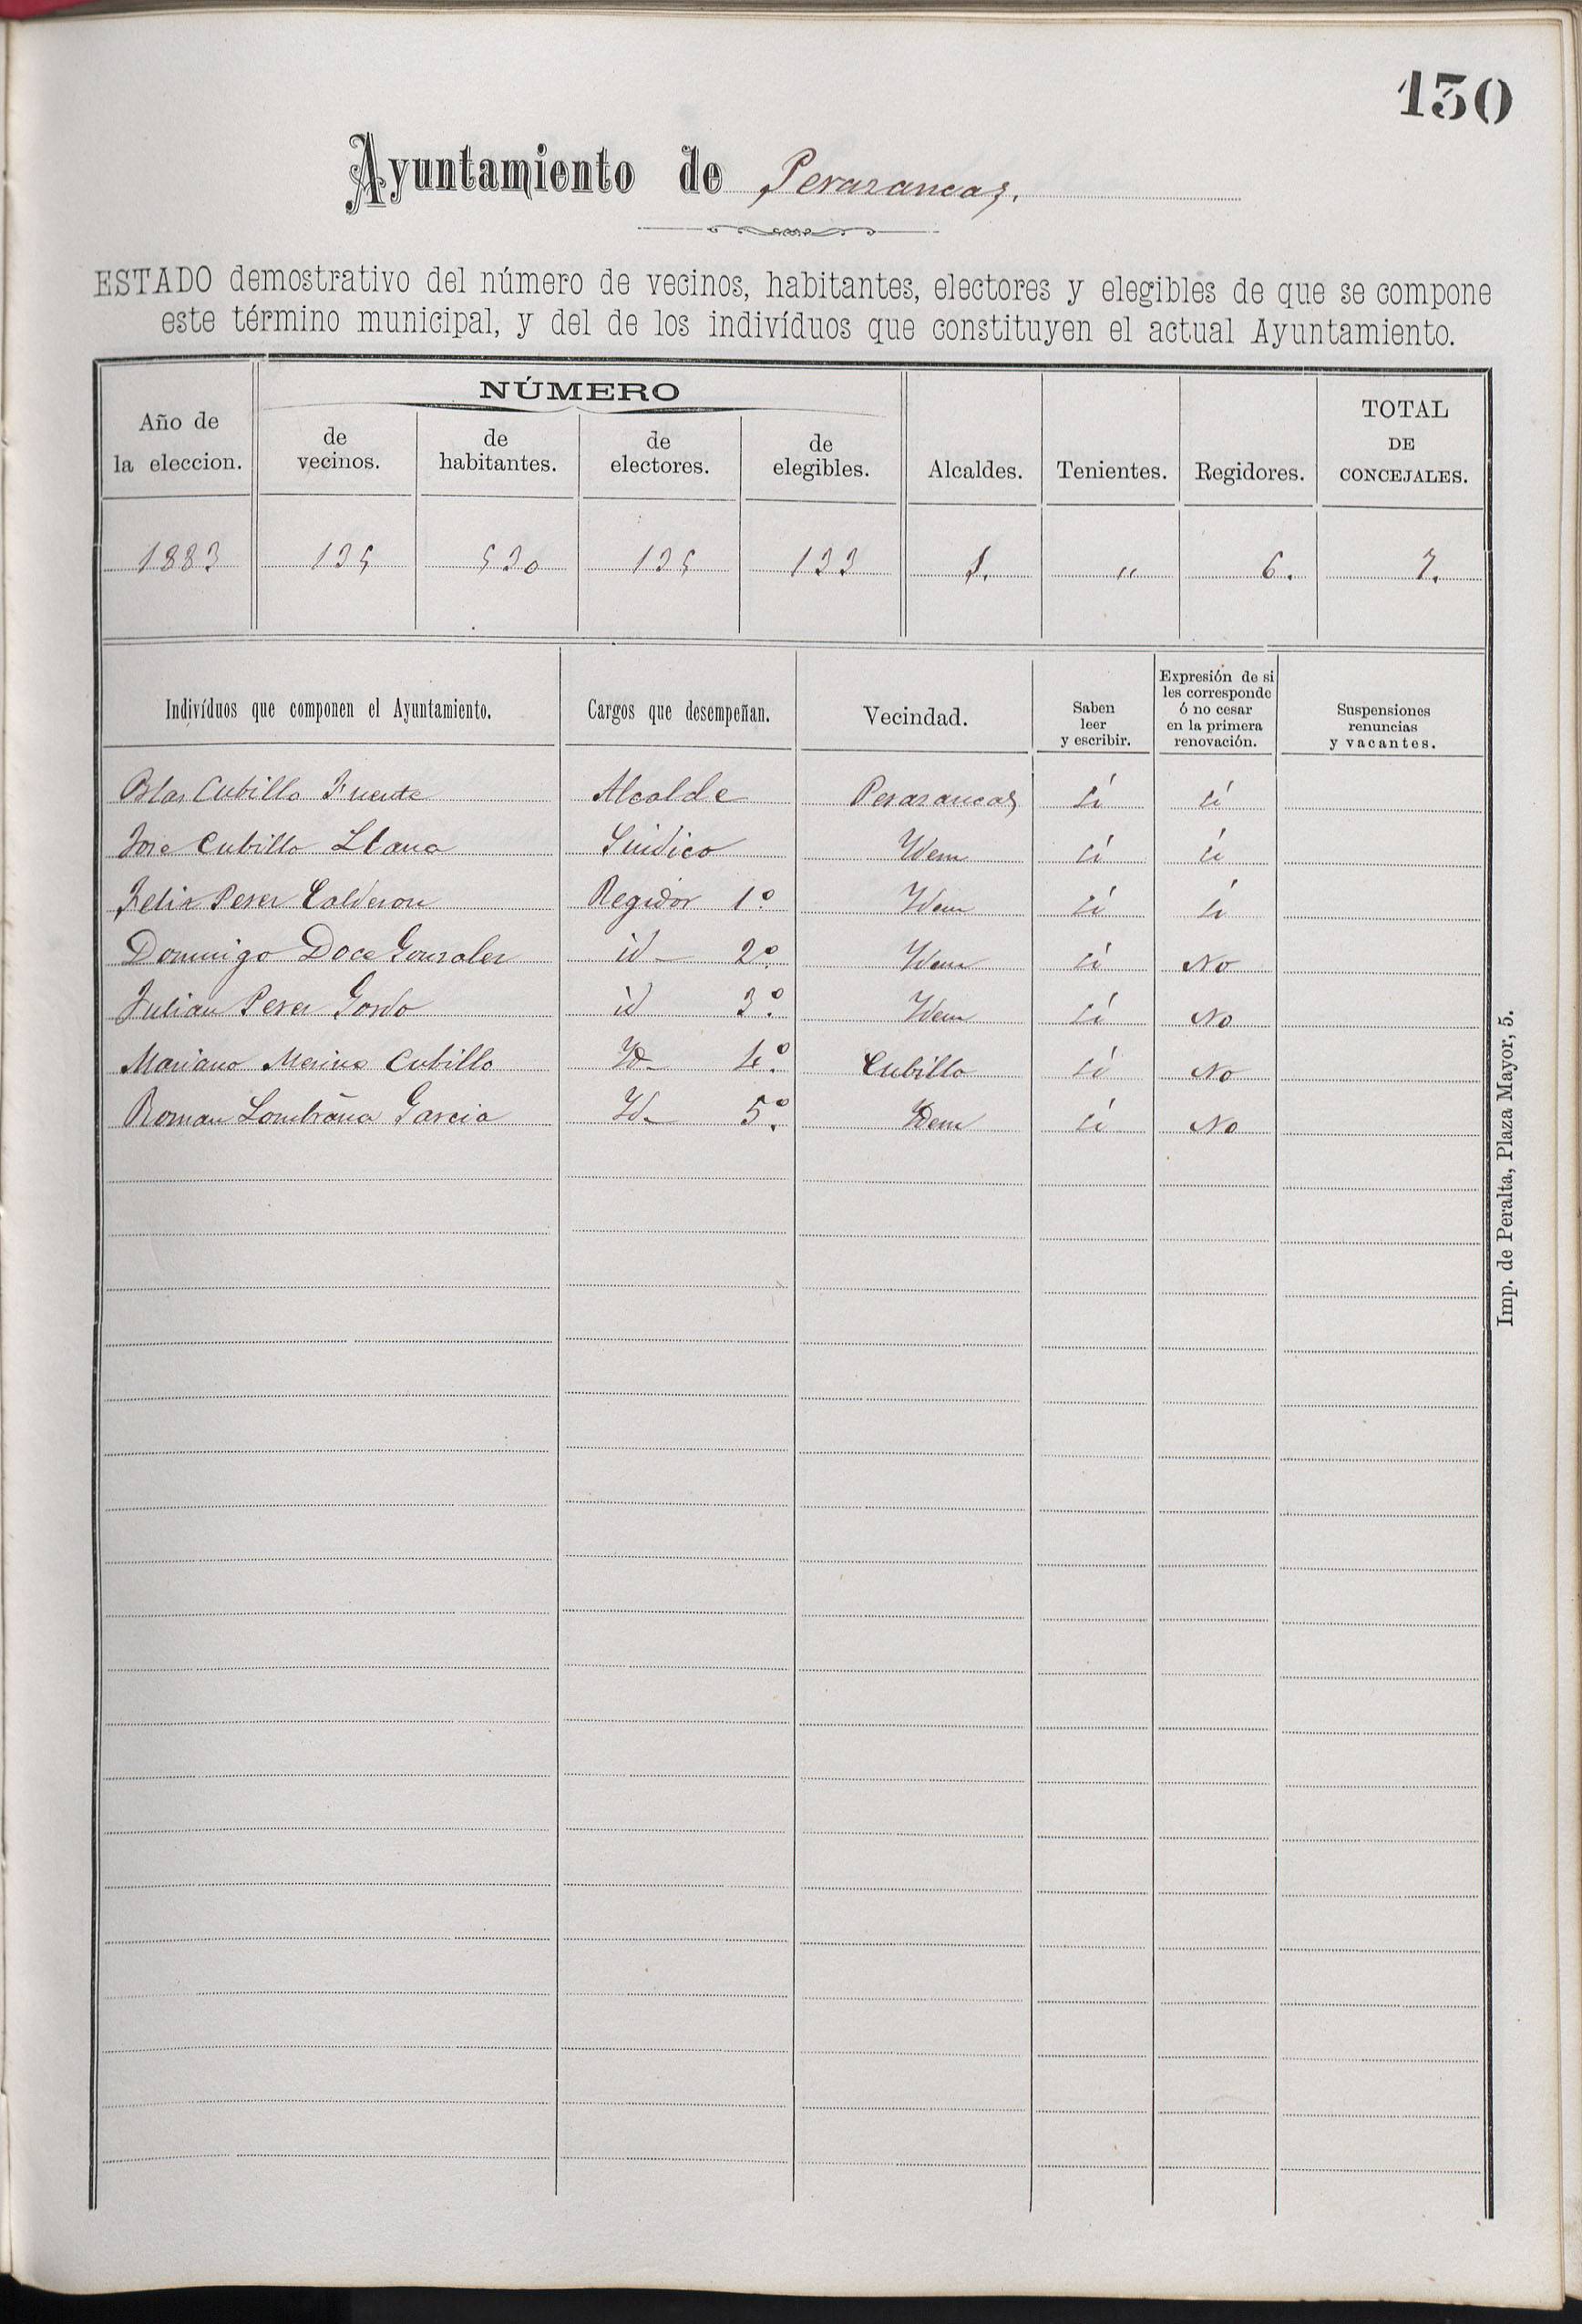 130
Ayuntamiento de Perazancas.
ESTADO demostrativo del número de vecinos, habitantes, electores y elegibles de que se compone
este término municipal, y del de los indivíduos que constituyen el actual Ayuntamiento.
Año de la eleccion. NÚMERO de vecinos. de habitantes. de electores. de elegibles. Alcaldes. Tenientes. Regidores. TOTAL DE CONCEJALES.
1883 135 530 135 133 1. " 6. 7.
Indivíduos que componen el Ayuntamiento. Cargos que desempeñan. Vecindad. Saben leer y escribir. Expresión de si les corresponde ó no cesar en la primera renovación. Suspensiones renuncias y vacantes.
Blas Cubillo Fuente Alcalde Perazancas sí sí
Jose Cubillo Llana Sindico Ydem sí sí
Felix Perez Calderon Regidor 1º Ydem sí sí
Domingo Doce Gonzalez id 2º Ydem sí No
Julian Perez Gordo id 3º Ydem sí No
Mariano Merino Cubillo Yd 4º Cubillo sí No
Roman Lombraña Garcia Yd 5º Ydem sí No
Imp. de Peralta, Plaza Mayor, 5.